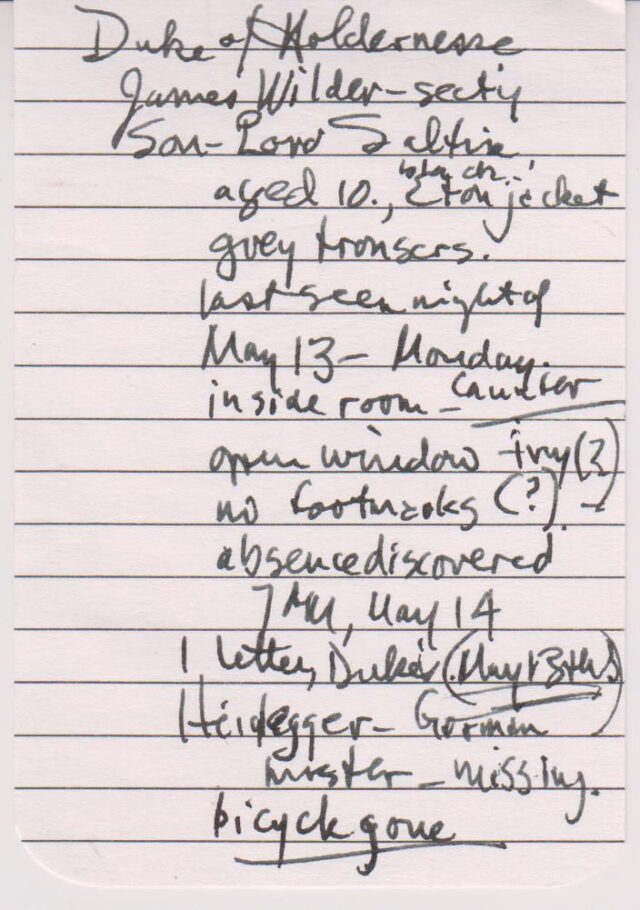 Duke of Holdernesse
James Wilder - secty
Son - Lord Saltire
aged 10., Eton jacket
grey trousers.
last seen night of
May 13 - Monday.
inside room - Caunter
open window - ivy (?)
no footmarks (?). -
absence discovered
7 AM, May 14
1 letter, Duke's (May 13th)
Heidegger - German
master - missing.
bicycle gone